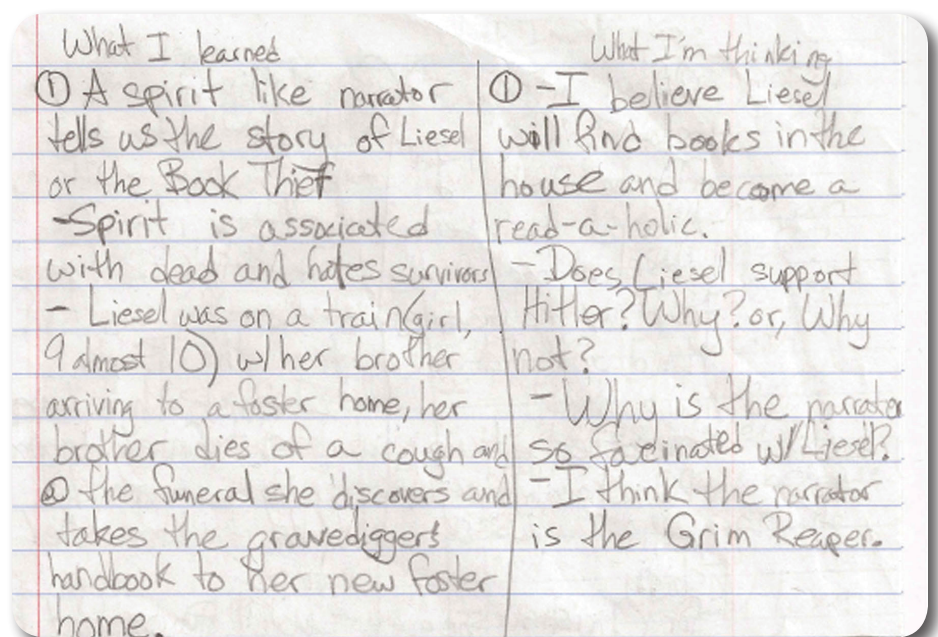 What I learned
① A spirit like narrator
tells us the story of Liesel
or the Book Thief
-Spirit is associated
with dead and hates survivors
- Liesel was on a train(girl,
9 almost 10) w/ her brother
arriving to a foster home, her
brother dies of a cough and
@ the funeral she discovers and
takes the gravediggers
handbook to her new foster
home.
What I'm thinking
① -I believe Liesel
will find books in the
house and become a
read-a-holic.
- Does Liesel support
Hitler? Why? or, Why
not?
- Why is the narrator
so facinated w/ Liesel?
-I think the narrator
is the Grim Reaper.